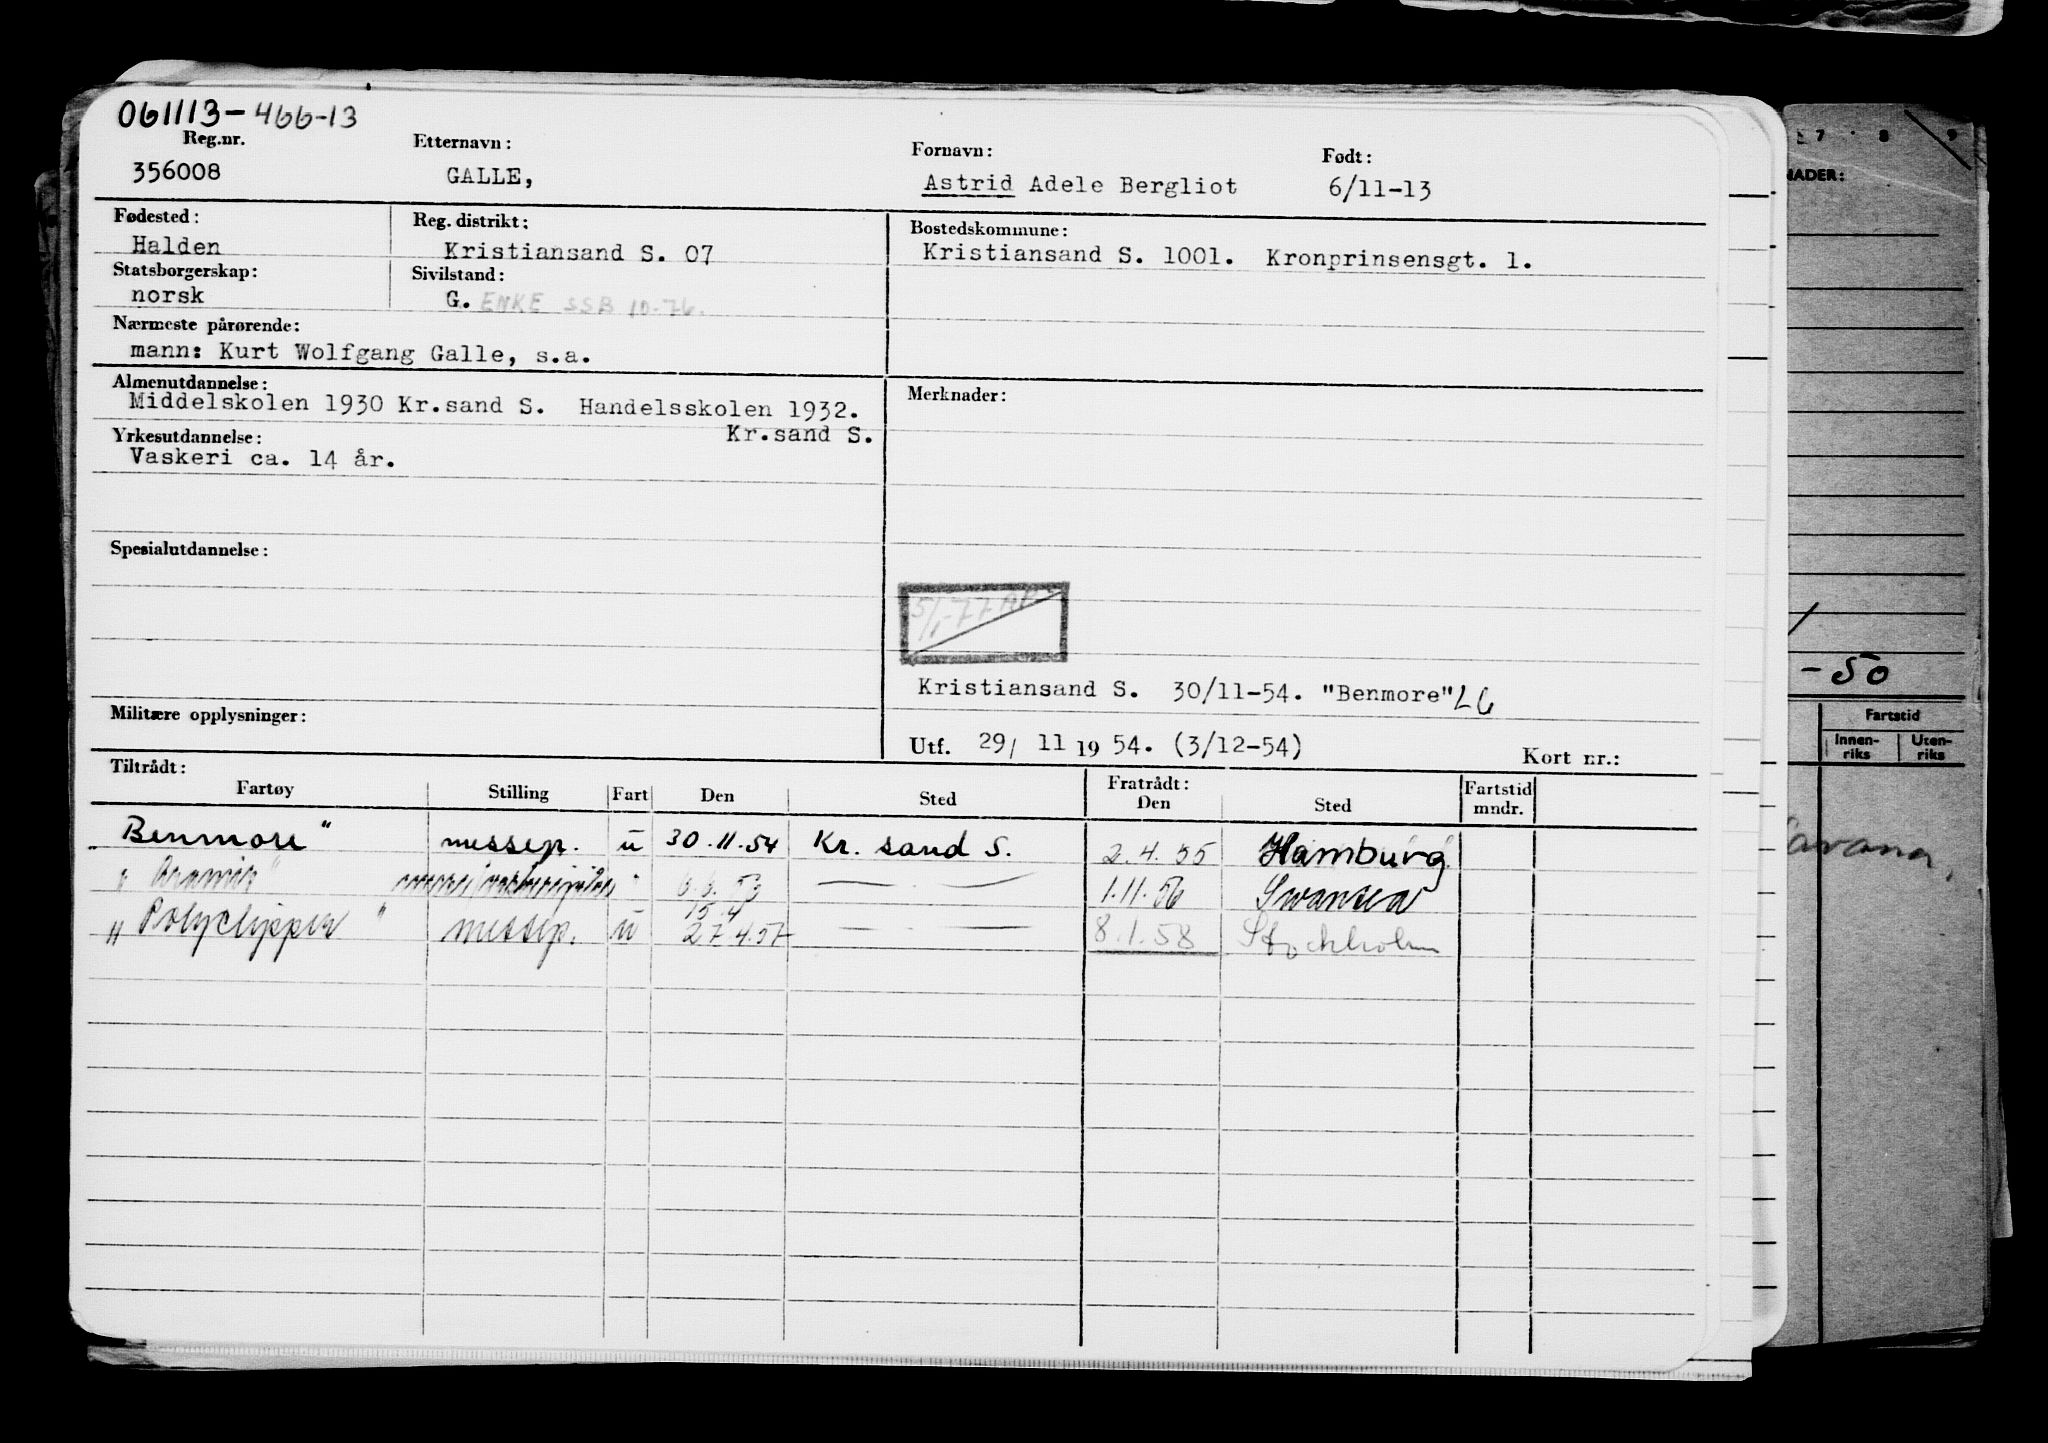 061113-466-13
Reg.nr. Etternavn: Fornavn: Født:
356008 GALLE, Astrid Adele Bergliot 6/11-13
Fødested: Reg. distrikt: Bostedskommune:
Halden Kristiansand S. 07 Kristiansand S. 1001. Kronprinsensgt. 1.
Statsborgerskap: Sivilstand:
norsk G. ENKE SSB 10-76.
Nærmeste pårørende:
mann: Kurt Wolfgang Galle, s.a.
Almenutdannelse: Merknader:
Middelskolen 1930 Kr.sand S. Handelsskolen 1932.
Kr.sand S.
Yrkesutdannelse:
Vaskeri ca. 14 år.
Spesialutdannelse:
5/1-77
Kristiansand S. 30/11-54. "Benmore" LG
Militære opplysninger:
Utf. 29/ 11 1954. (3/12-54) Kort nr.:
Tiltrådt: Fratrådt:
Fartøy Stilling Fart Den Sted Den Sted Fartstid mndr.
"Benmore" messep. u 30.11.54 Kr. sand S. 2.4.55 Hamburg
1.11.56 Swansea
15.4
"Polyclipper" messep. u 27.4.57 — " — 8.1.58 Stockholm
7 8 9
NADER:
-50
Fartstid
Innen-riks Uten-riks